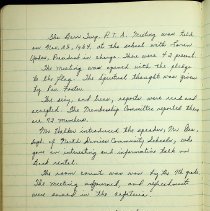 The Dern Twp. P.T.A. Meeting was held
on Nov. 25, 1964, at the school with
President in charge. There were 42 present.
The Meeting was opened with the pledge
to the flag. The Spiritual Thought was given
by Fern Foster.
The sec'y. and treas. reports were read and
accepted. The Membership Committee reported there
are 92 members.
Mrs. introduced the speaker, Mr.
Supt. of North Community Schools, who
gave an interesting and informative talk on
The room count was won by the 7th grade.
The meeting adjourned, and refreshments
were served in the cafeteria.